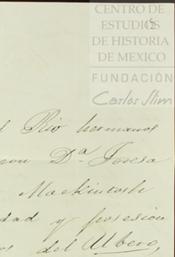 CENTRO DE
ESTUDIOS
DE HISTORIA
DE MEXICO
FUNDACIÓN
Carlos Slim
Rio hermanos
Dª Teresa
Mackintosh
dad y posesion
del Albero,